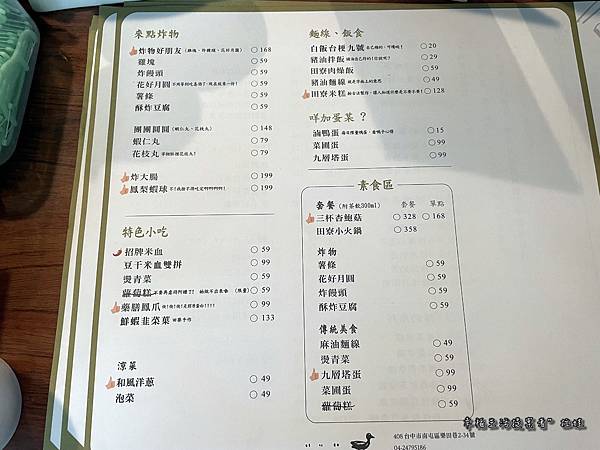 來點炸物
炸物好朋友 168
雞塊 59
炸饅頭 59
花好月圓 59
薯條 59
酥炸豆腐 59
團團圓圓(蝦仁丸、花枝丸) 148
蝦仁丸 79
花枝丸 79
炸大腸 199
鳳梨蝦球 199
特色小吃
招牌米血 59
豆干米血雙拼 59
燙青菜 59
蘿蔔糕 (限量) 59
藥膳鳳爪 99
鮮蝦韭菜菓 133
涼菜
和風洋蔥 49
泡菜 49
麵線、飯食
白飯台梗九號 20
豬油拌飯 29
田寮肉燥飯 59
豬油麵線 49
田寮米糕 128
咩加蛋某?
滷鴨蛋 15
菜圃蛋 99
九層塔蛋 99
素食區
套餐(附茶飲300ml) 套餐 單點
三杯杏鮑菇 328 168
田寮小火鍋 358
炸物
薯條 59
花好月圓 59
炸饅頭 59
酥炸豆腐 59
傳統美食
麻油麵線 49
燙青菜 59
九層塔蛋 99
菜圃蛋 99
蘿蔔糕 59
408台中市南屯區樂田巷2-34號
04-24795186